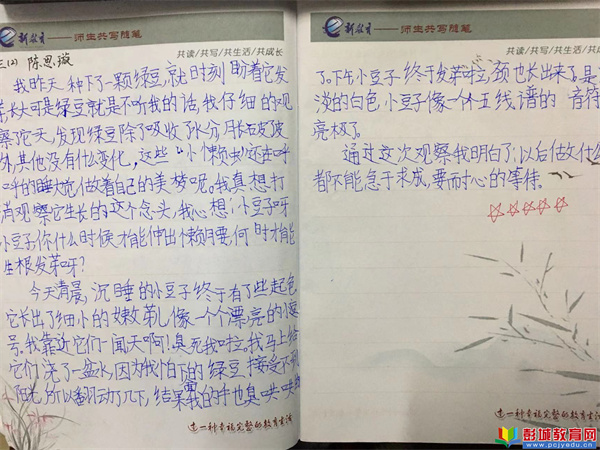 新教育——师生共写随笔
共读/共写/共生活/共成长
三(2) 陈思璇
我昨天种下了一颗绿豆,就时刻盼着它发
芽长大可是绿豆就是不听我的话,我仔细的观
察陀天,发现绿豆除了吸收了水分,月长后发皮
外,其他没有什么变化,这些“小懒虫”还在呼
呼的睡大觉,做着自己的美梦呢。我真想打
消观察它生长的这个念头,我心想:小豆子呀
小豆子,你什么时候才能伸出懒腰,何时才能
生根发芽呀?
今天清晨,沉睡的小豆子终于有了些起色
它长出了细小的嫩芽儿,像一个个漂亮的小逗
号。我靠近它们一闻天啊!臭死我啦。我马上给
它们浇了一盆水,因为我怕下的绿豆接受不到
阳光,所以翻动了几下,结果我的手也臭哄哄
这一种幸福完整的教育生活
新教育——师生共写随笔
共读/共写/共生活/共成长
了。下午小豆子终于发芽啦,颈也长出了,是
淡的白色,小豆子像一个个五线谱的音符
亮极了。
通过这次观察我明白了:以后做什么
都不能急于求成,要耐心的等待。
这一种幸福完整的教育生活
彭城教育网
www.pcjyedu.cn